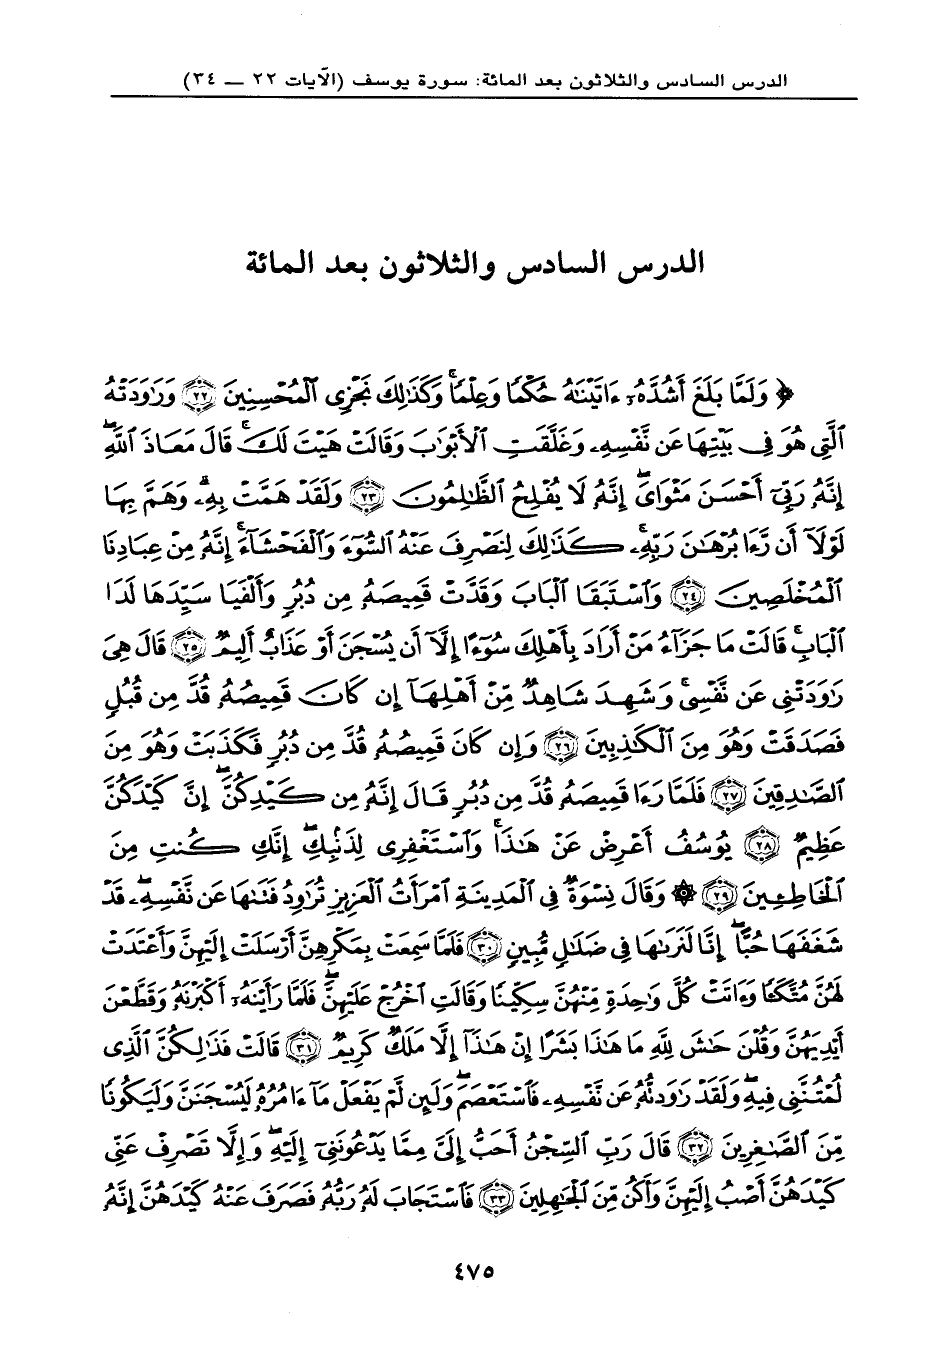 الدرس السادس والثلاثون بعد المائة: سورة يوسف (الآيات ٢٢ — ٣٤)
الدرس السادس والثلاثون بعد المائة
﴿ وَلَمَّا بَلَغَ أَشُدَّهُۥٓ ءَاتَيْنَٰهُ حُكْمًا وَعِلْمًا ۚ وَكَذَٰلِكَ نَجْزِى ٱلْمُحْسِنِينَ ﴿٢٢﴾ وَرَٰوَدَتْهُ
ٱلَّتِى هُوَ فِى بَيْتِهَا عَن نَّفْسِهِۦ وَغَلَّقَتِ ٱلْأَبْوَٰبَ وَقَالَتْ هَيْتَ لَكَ ۚ قَالَ مَعَاذَ ٱللَّهِ ۖ
إِنَّهُۥ رَبِّىٓ أَحْسَنَ مَثْوَاىَ ۖ إِنَّهُۥ لَا يُفْلِحُ ٱلظَّٰلِمُونَ ﴿٢٣﴾ وَلَقَدْ هَمَّتْ بِهِۦ ۖ وَهَمَّ بِهَا
لَوْلَآ أَن رَّءَا بُرْهَٰنَ رَبِّهِۦ ۚ كَذَٰلِكَ لِنَصْرِفَ عَنْهُ ٱلسُّوٓءَ وَٱلْفَحْشَآءَ ۚ إِنَّهُۥ مِنْ عِبَادِنَا
ٱلْمُخْلَصِينَ ﴿٢٤﴾ وَٱسْتَبَقَا ٱلْبَابَ وَقَدَّتْ قَمِيصَهُۥ مِن دُبُرٍ وَأَلْفَيَا سَيِّدَهَا لَدَا
ٱلْبَابِ ۚ قَالَتْ مَا جَزَآءُ مَنْ أَرَادَ بِأَهْلِكَ سُوٓءًا إِلَّآ أَن يُسْجَنَ أَوْ عَذَابٌ أَلِيمٌ ﴿٢٥﴾ قَالَ هِىَ
رَٰوَدَتْنِى عَن نَّفْسِى ۚ وَشَهِدَ شَاهِدٌ مِّنْ أَهْلِهَآ إِن كَانَ قَمِيصُهُۥ قُدَّ مِن قُبُلٍ
فَصَدَقَتْ وَهُوَ مِنَ ٱلْكَٰذِبِينَ ﴿٢٦﴾ وَإِن كَانَ قَمِيصُهُۥ قُدَّ مِن دُبُرٍ فَكَذَبَتْ وَهُوَ مِنَ
ٱلصَّٰدِقِينَ ﴿٢٧﴾ فَلَمَّا رَءَا قَمِيصَهُۥ قُدَّ مِن دُبُرٍ قَالَ إِنَّهُۥ مِن كَيْدِكُنَّ ۖ إِنَّ كَيْدَكُنَّ
عَظِيمٌ ﴿٢٨﴾ يُوسُفُ أَعْرِضْ عَنْ هَٰذَا ۚ وَٱسْتَغْفِرِى لِذَنۢبِكِ ۖ إِنَّكِ كُنتِ مِنَ
ٱلْخَاطِـِٔينَ ﴿٢٩﴾ ۞ وَقَالَ نِسْوَةٌ فِى ٱلْمَدِينَةِ ٱمْرَأَتُ ٱلْعَزِيزِ تُرَٰوِدُ فَتَىٰهَا عَن نَّفْسِهِۦ ۖ قَدْ
شَغَفَهَا حُبًّا ۖ إِنَّا لَنَرَىٰهَا فِى ضَلَٰلٍ مُّبِينٍ ﴿٣٠﴾ فَلَمَّا سَمِعَتْ بِمَكْرِهِنَّ أَرْسَلَتْ إِلَيْهِنَّ وَأَعْتَدَتْ
لَهُنَّ مُتَّكَـًٔا وَءَاتَتْ كُلَّ وَٰحِدَةٍ مِّنْهُنَّ سِكِّينًا وَقَالَتِ ٱخْرُجْ عَلَيْهِنَّ ۖ فَلَمَّا رَأَيْنَهُۥٓ أَكْبَرْنَهُۥ وَقَطَّعْنَ
أَيْدِيَهُنَّ وَقُلْنَ حَٰشَ لِلَّهِ مَا هَٰذَا بَشَرًا إِنْ هَٰذَآ إِلَّا مَلَكٌ كَرِيمٌ ﴿٣١﴾ قَالَتْ فَذَٰلِكُنَّ ٱلَّذِى
لُمْتُنَّنِى فِيهِ ۖ وَلَقَدْ رَٰوَدتُّهُۥ عَن نَّفْسِهِۦ فَٱسْتَعْصَمَ ۖ وَلَئِن لَّمْ يَفْعَلْ مَآ ءَامُرُهُۥ لَيُسْجَنَنَّ وَلَيَكُونًا
مِّنَ ٱلصَّٰغِرِينَ ﴿٣٢﴾ قَالَ رَبِّ ٱلسِّجْنُ أَحَبُّ إِلَىَّ مِمَّا يَدْعُونَنِىٓ إِلَيْهِ ۖ وَإِلَّا تَصْرِفْ عَنِّى
كَيْدَهُنَّ أَصْبُ إِلَيْهِنَّ وَأَكُن مِّنَ ٱلْجَٰهِلِينَ ﴿٣٣﴾ فَٱسْتَجَابَ لَهُۥ رَبُّهُۥ فَصَرَفَ عَنْهُ كَيْدَهُنَّ إِنَّهُۥ
٤٧٥